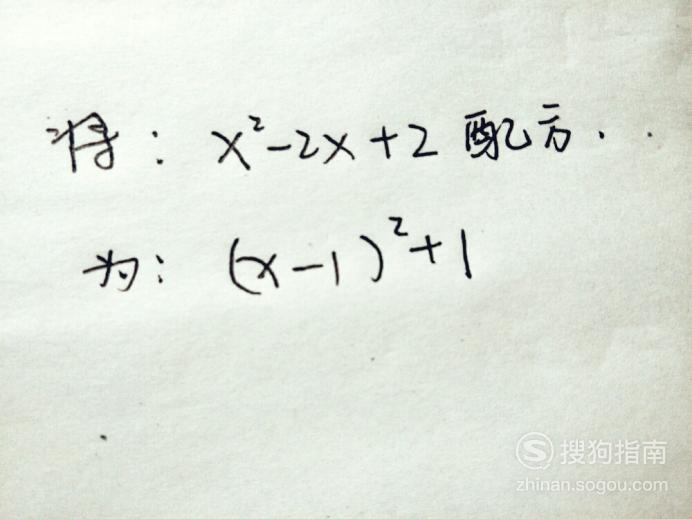 将：x²-2x+2 配方..
为：(x-1)²+1
搜狗指南
zhinan.sogou.com